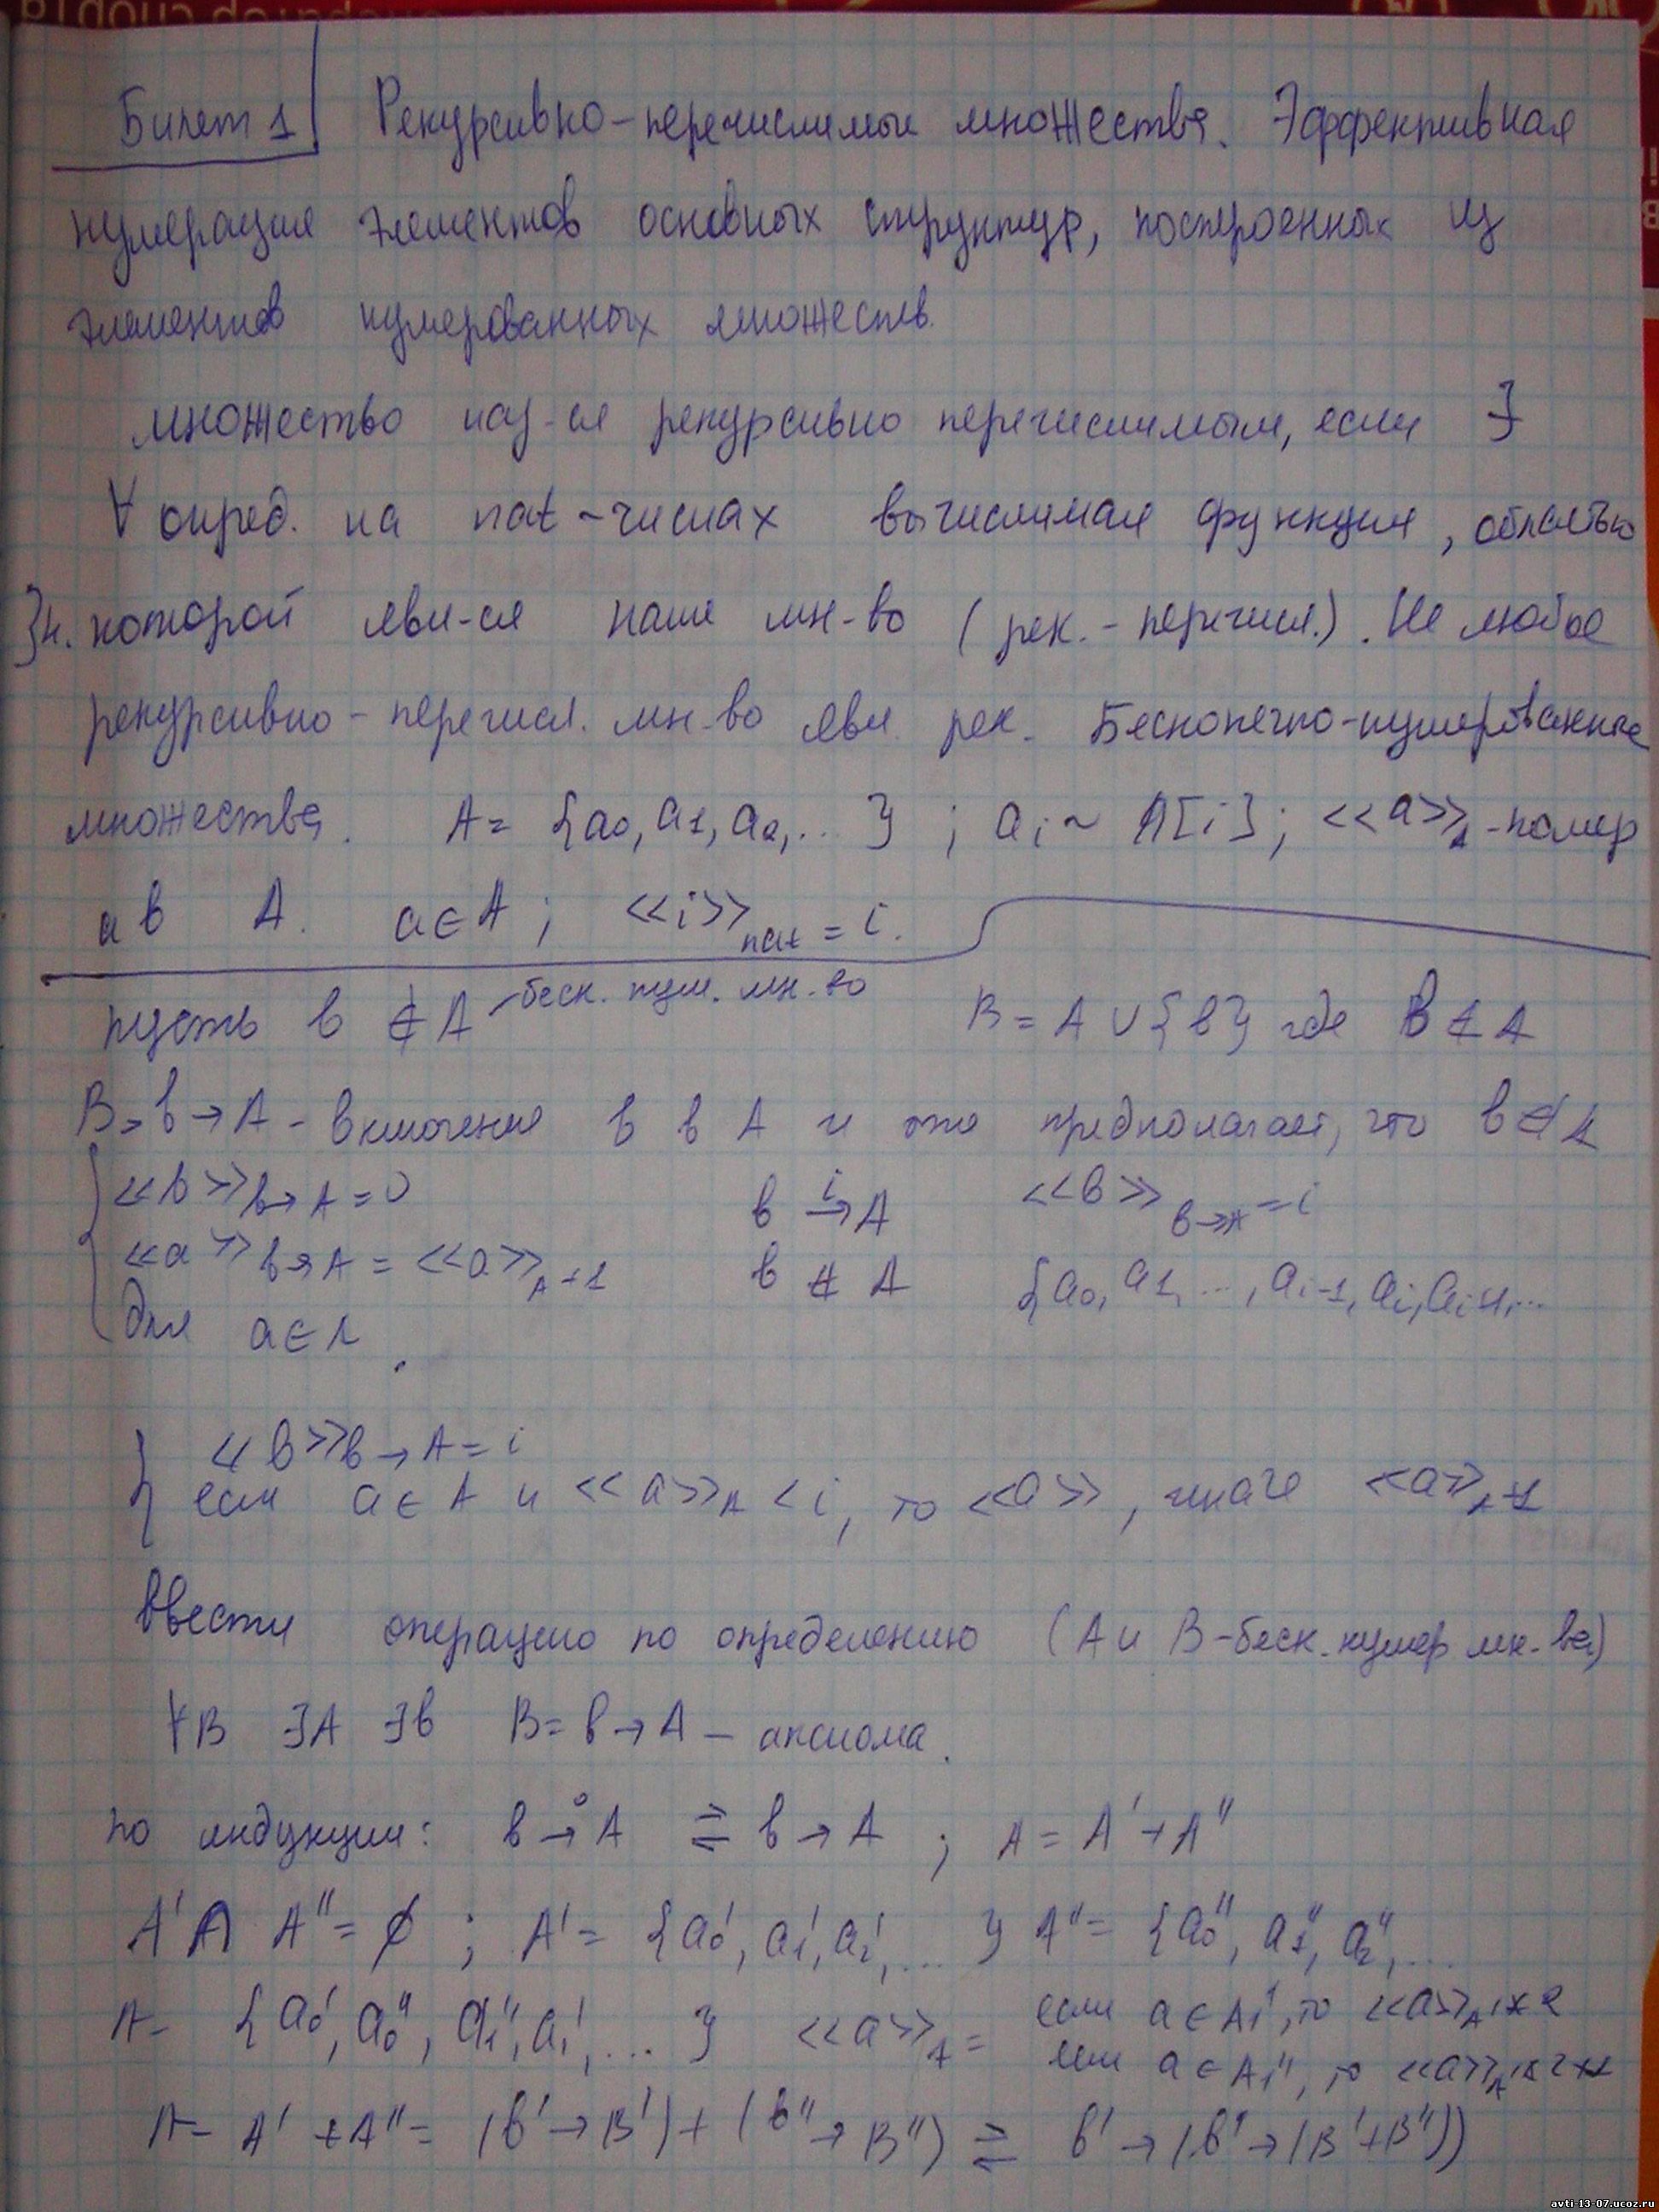 Билет 1 Рекурсивно-перечислимые множества. Эффективная
нумерация элементов основных структур, построенных из
элементов нумерованных множеств.
множество наз-ся рекурсивно перечислимым, если ∃
∀ опред. на nat-числах вычислимая функция, областью
зн. которой явл-ся наше мн-во (рек.-перечисл.). Не любое
рекурсивно-перечисл. мн-во явл. рек. Бесконечно-нумерованные
множества. A = {a₀, a₁, a₂, ... } ; aᵢ ~ A[i] ; <<a>>_A - номер
a в A. a ∈ A ; <<i>>_nat = i.
пусть b ∉ A - беск. нум. мн-во B = A ∪ {b} где B ∉ A
B = b → A - включение b в A и это предполагает, что b ∉ A
<<b>> b→A = 0 b →ⁱ A <<b>> b→A = i
<<a>> b→A = <<a>>_A +1 b ∉ A {a₀, a₁, ..., aᵢ₋₁, aᵢ, aᵢ₊₁, ...
для a ∈ A.
<<b>> b→A = i
если a ∈ A и <<a>>_A < i, то <<a>>, иначе <<a>>_A +1
ввести операцию по определению (A и B - беск. нумер мн-ва)
∀B ∃A ∃b B = b → A - аксиома.
по индукции: b →⁰ A ⇌ b → A ; A = A' + A''
A' ∩ A'' = ∅ ; A' = {a₀', a₁', a₂', ... } A'' = {a₀'', a₁'', a₂'', ...
A = {a₀', a₀'', a₁'', a₁', ... } <<a>>_A =
если a ∈ A₁', то <<a>>_A' * 2
если a ∈ A₁'', то <<a>>_A''
A = A' + A'' = (b' → B') + (b'' → B'') ⇌ b' → (b'' → (B' + B''))
avti-13-07.ucoz.ru